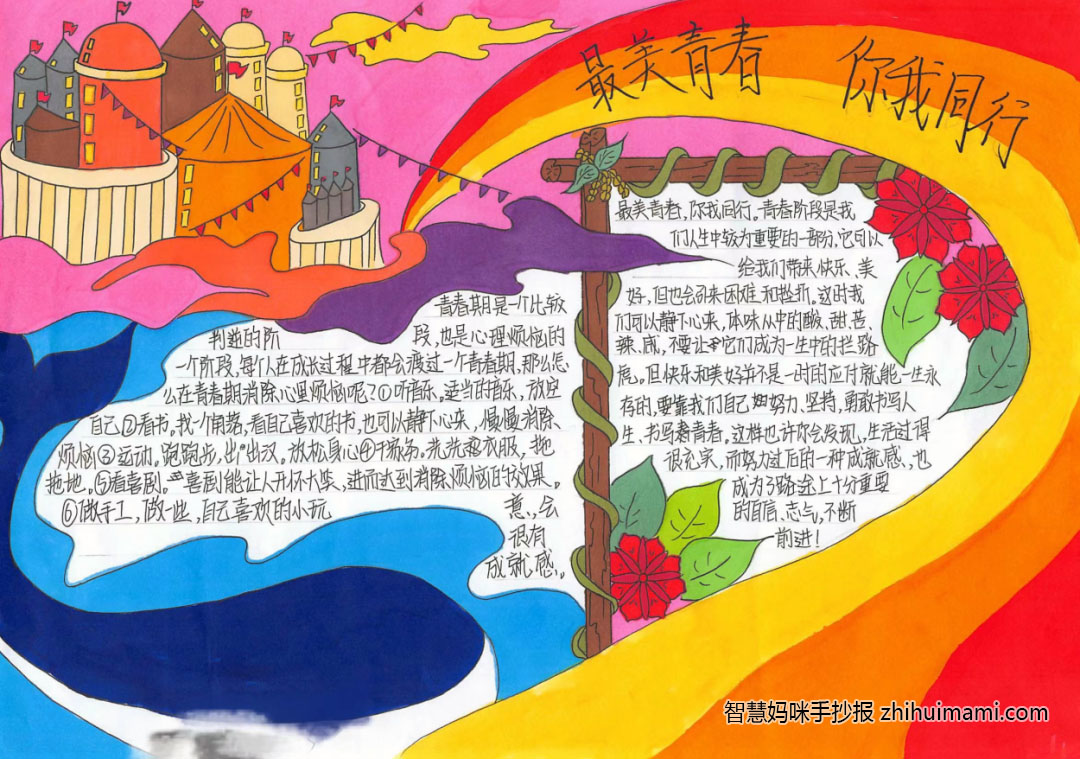 最美青春 你我同行
最美青春,你我同行。青春阶段是我
们人生中较为重要的一部分,它可以
给我们带来快乐、美
好,但也会带来困难和挫折。这时我
们可以静下心来,体味从中的酸、甜、苦、
辣、咸,不要让它们成为一生中的拦路
虎。但快乐和美好并不是一时的应付就能一生永
存的,要靠我们自己努力、坚持,勇敢书写人
生、书写青春。这样也许你会发现,生活过得
很充实,而努力过后的一种成就感、也
成为了路途上十分重要
的自信、志气,不断
前进!
青春期是一个比较
判逆的阶段,也是心理烦恼的
一个阶段,每个人在成长过程中都会渡过一个青春期,那么怎
么在青春期消除心里烦恼呢?①听音乐。适当的音乐,放空
自己②看书。找一个角落,看自己喜欢的书,也可以静下心来,慢慢消除
烦恼③运动。跑跑步,出出汉。放松身心④干家务。洗洗衣服,拖
拖地。⑤看喜剧。喜剧能让人开怀大笑,进而达到消除烦恼的效果。
⑥做手工,做一些,自己喜欢的小玩
意、会
很有
成就感。
智慧妈咪手抄报 zhihuimami.com